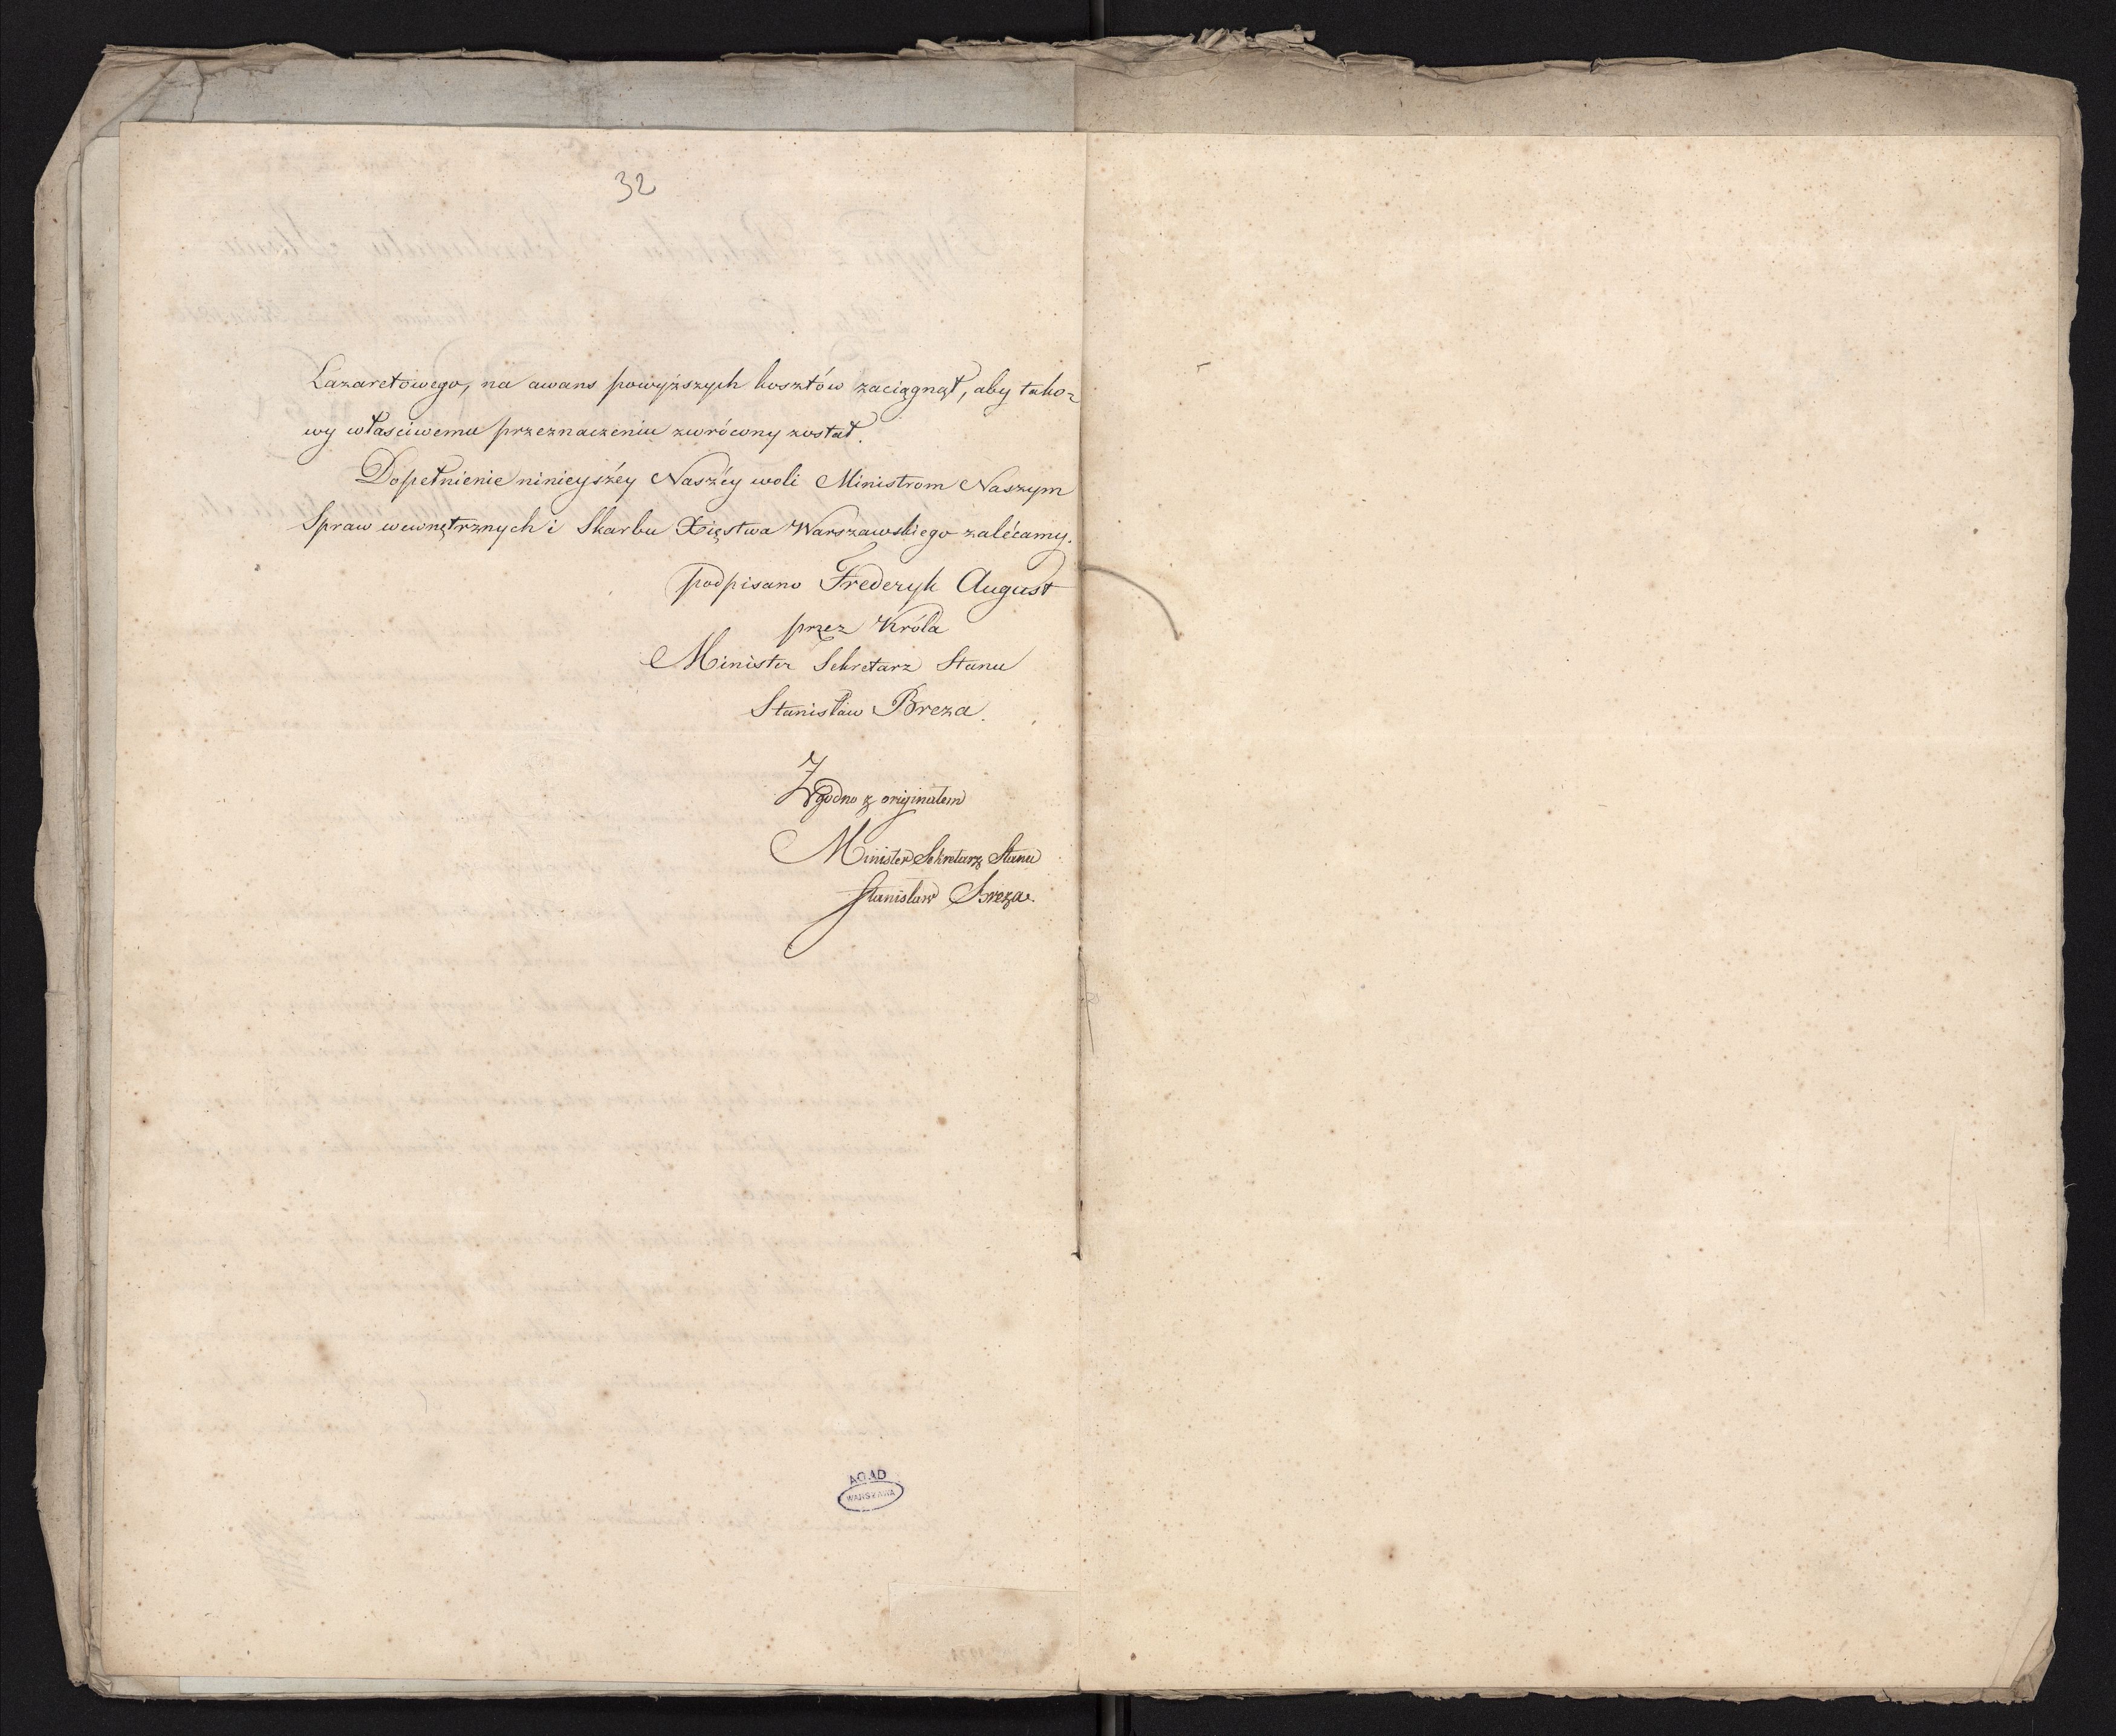 32
Lazaretowego, na awans powyższych kosztów zaciągnął, aby tako=
wy właściwemu przeznaczeniu zwrócony został.
Dopełnienie ninieyszéy Naszéy woli Ministrom Naszym
Spraw wewnętrznych i Skarbu Xięstwa Warszawskiego zalécamy.
podpisano Frederyk August
przez Króla
Minister Sekretarz Stanu
Stanisław Breza.
Zgodno z originałem
Minister Sekretarz Stanu
Stanisław Breza.
AGAD
WARSZAWA